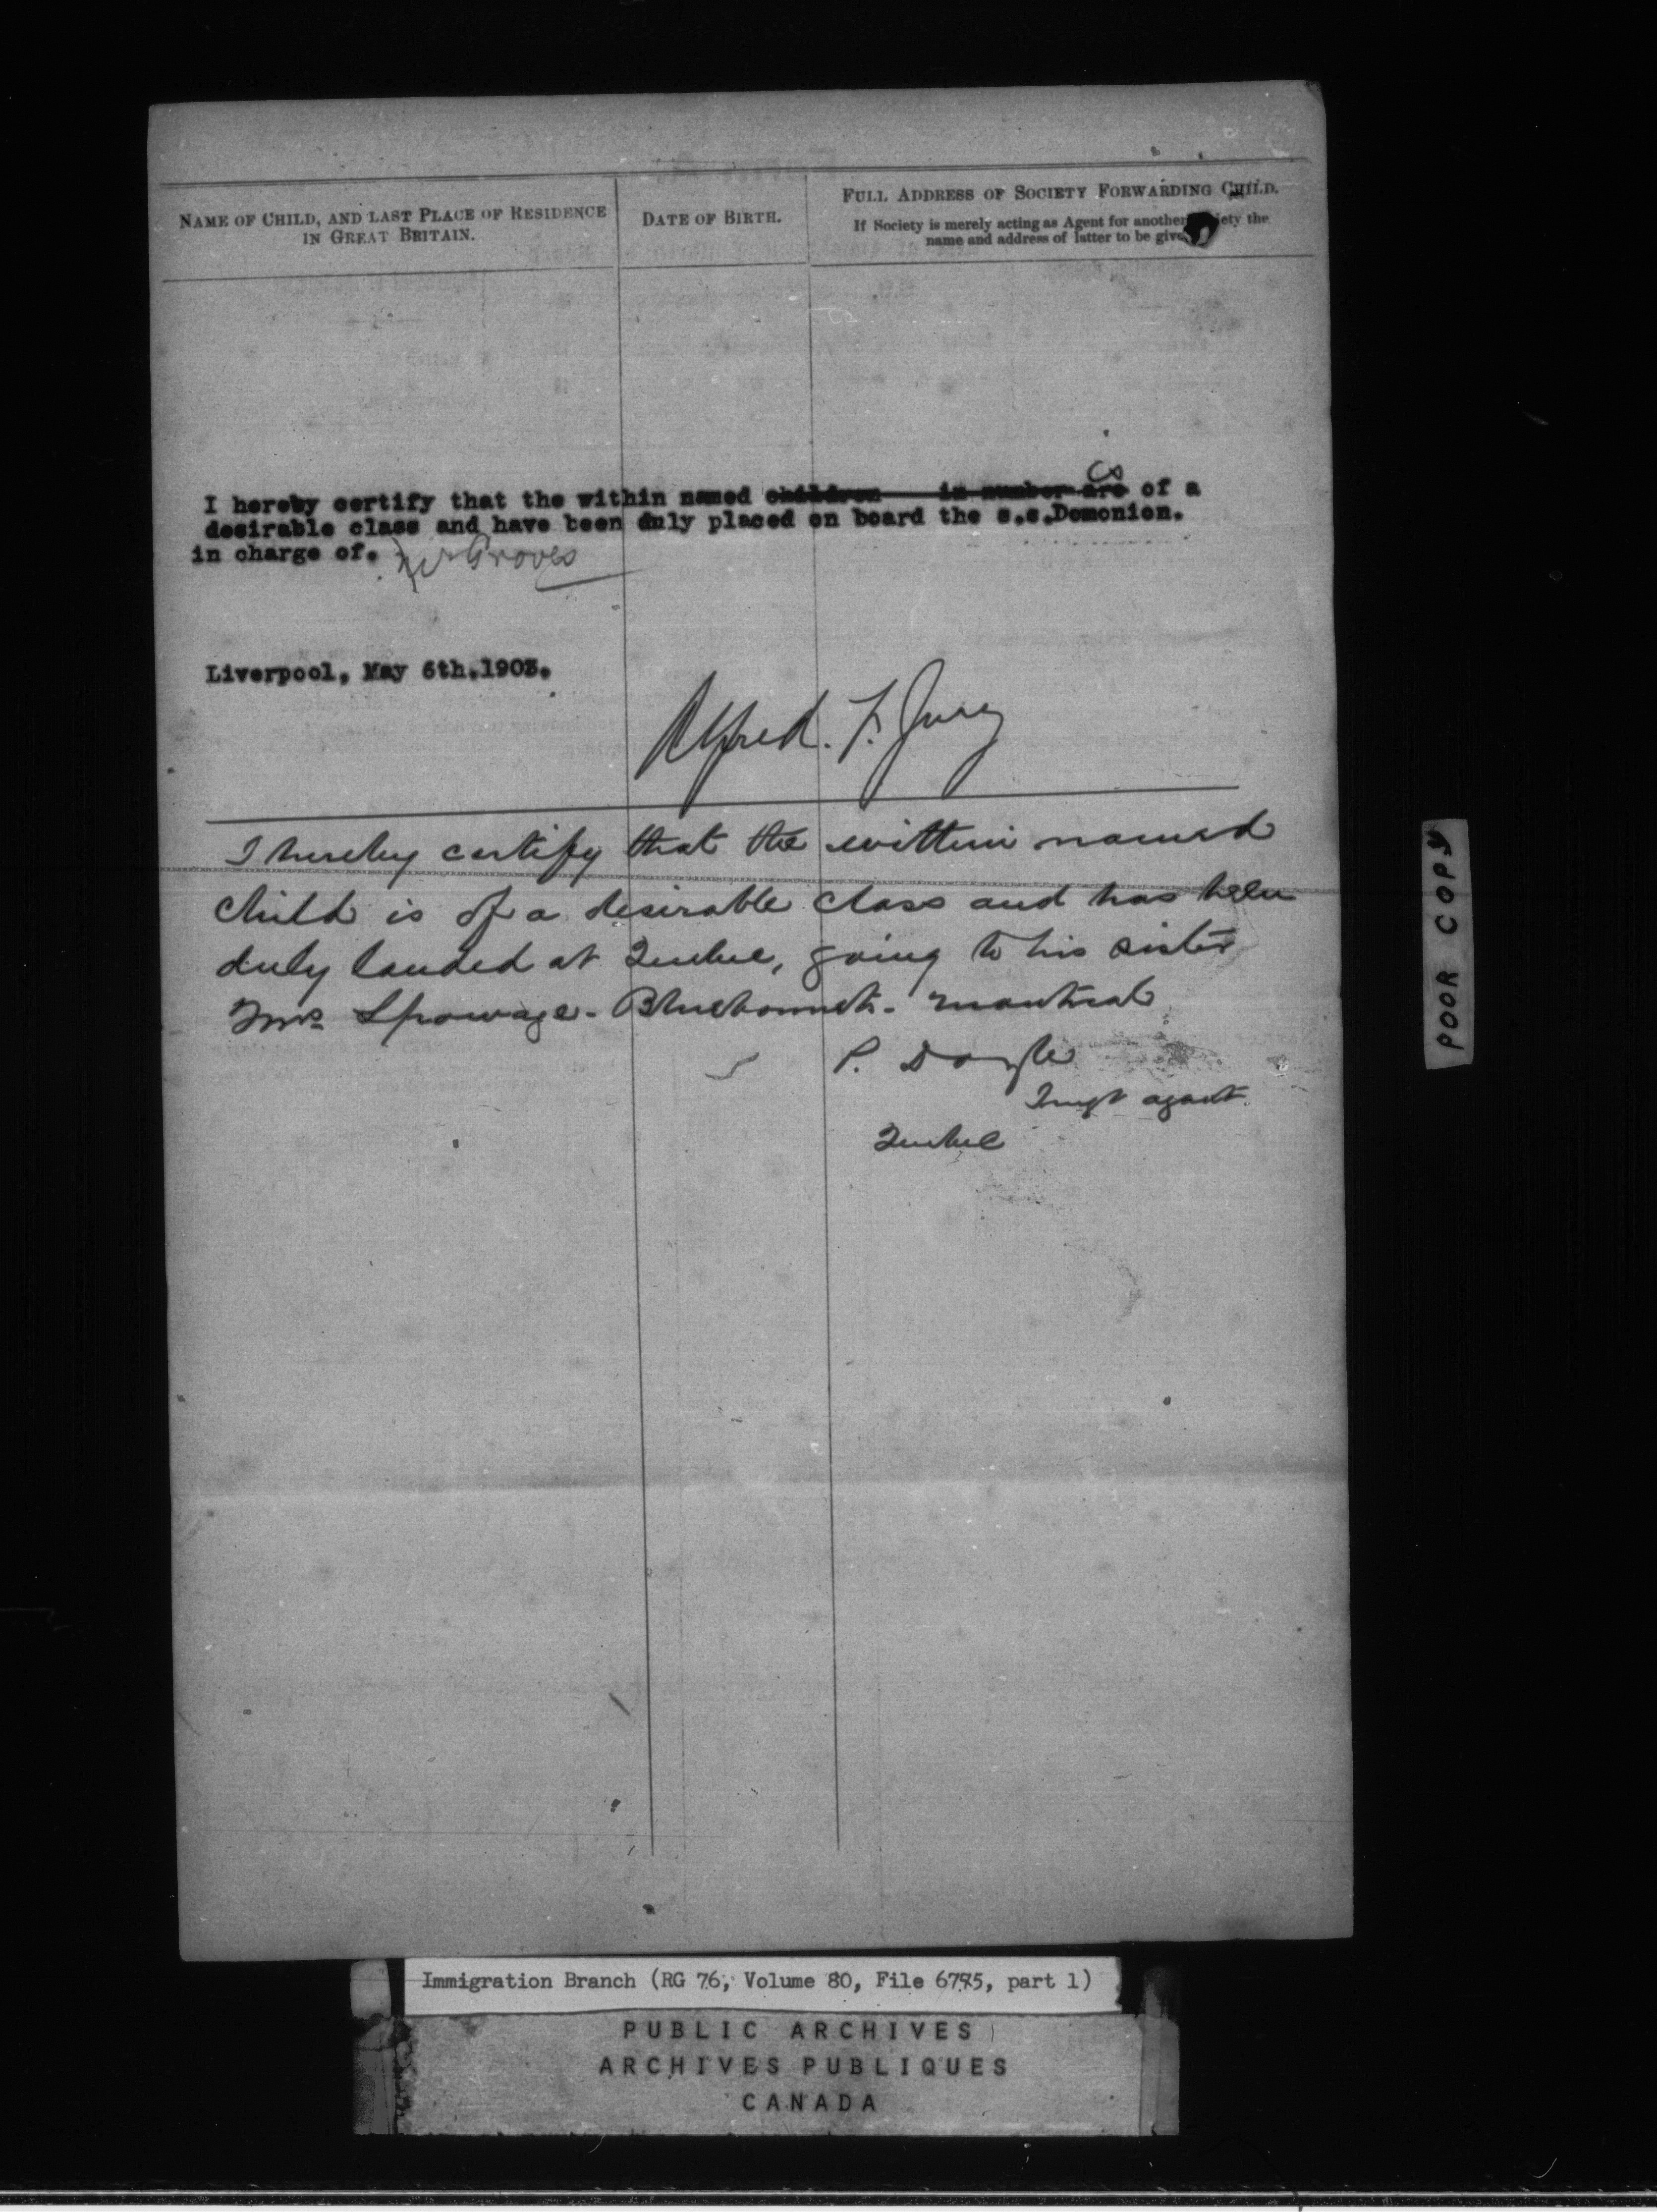 NAME OF CHILD, AND LAST PLACE OF RESIDENCE
IN GREAT BRITAIN.
DATE OF BIRTH.
FULL ADDRESS OF SOCIETY FORWARDING CHILD.
If Society is merely acting as Agent for another iety the
name and address of latter to be give
is
I hereby certify that the within named children in number are of a
desirable class and have been duly placed on board the s.s.Domonion.
in charge of. Mr Groves
Liverpool, May 6th.1903.
Alfred. F. Jury
I hereby certify that the within named
child is of a desirable class and has been
duly landed at Quebec, going to his sister
Mrs Sprowage - Bluebonnets - Montreal
P. Doyle
Imgt agent
Quebec
POOR COPY
Immigration Branch (RG 76, Volume 80, File 6775, part 1)
PUBLIC ARCHIVES
ARCHIVES PUBLIQUES
CANADA